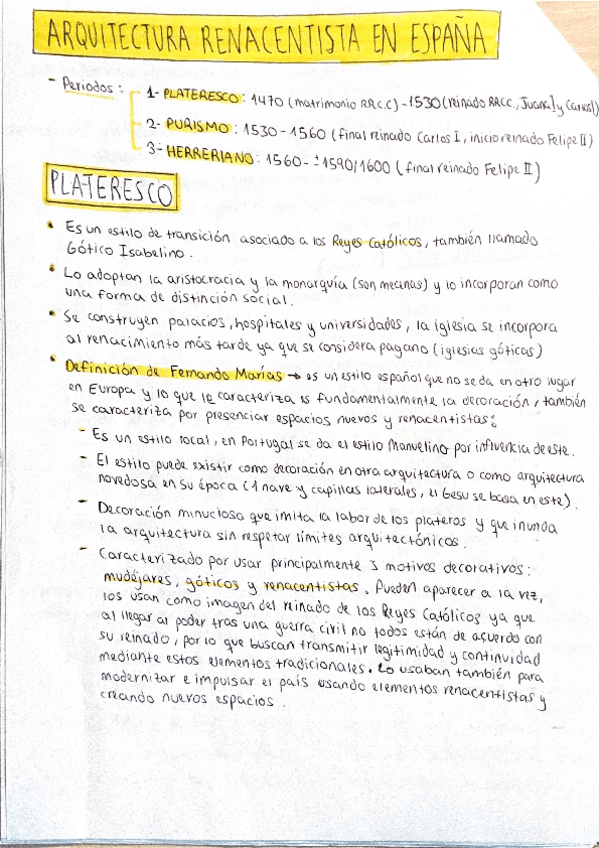 ARQUITECTURA RENACENTISTA EN ESPAÑA
- Periodos: 1- PLATERESCO: 1470 (matrimonio RR.CC) - 1530 (reinado RRCC, Juana I y Carlos I)
2- PURISMO: 1530 - 1560 (final reinado Carlos I, inicio reinado Felipe II)
3- HERRERIANO: 1560 - ±1590/1600 (final reinado Felipe II)
PLATERESCO
• Es un estilo de transición asociado a los Reyes Católicos, también llamado
Gótico Isabelino.
• Lo adoptan la aristocracia y la monarquía (son mecenas) y lo incorporan como
una forma de distinción social.
• Se construyen palacios, hospitales y universidades, la iglesia se incorpora
al renacimiento más tarde ya que se considera pagano (iglesias góticas)
• Definición de Fernando Marías → es un estilo español que no se da en otro lugar
en Europa y lo que le caracteriza es fundamentalmente la decoración, también
se caracteriza por presenciar espacios nuevos y renacentistas:
- Es un estilo local, en Portugal se da el estilo Manuelino por influencia de este.
- El estilo puede existir como decoración en otra arquitectura o como arquitectura
novedosa en su época (1 nave y capillas laterales, el Gesu se basa en este).
- Decoración minuciosa que imita la labor de los plateros y que inunda
la arquitectura sin respetar límites arquitectónicos.
- Caracterizado por usar principalmente 3 motivos decorativos:
mudéjares, góticos y renacentistas. Pueden aparecer a la vez,
los usan como imagen del reinado de los Reyes Católicos ya que
al llegar al poder tras una guerra civil no todos están de acuerdo con
su reinado, por lo que buscan transmitir legitimidad y continuidad
mediante estos elementos tradicionales. Lo usaban también para
modernizar e impulsar el país usando elementos renacentistas y
creando nuevos espacios.